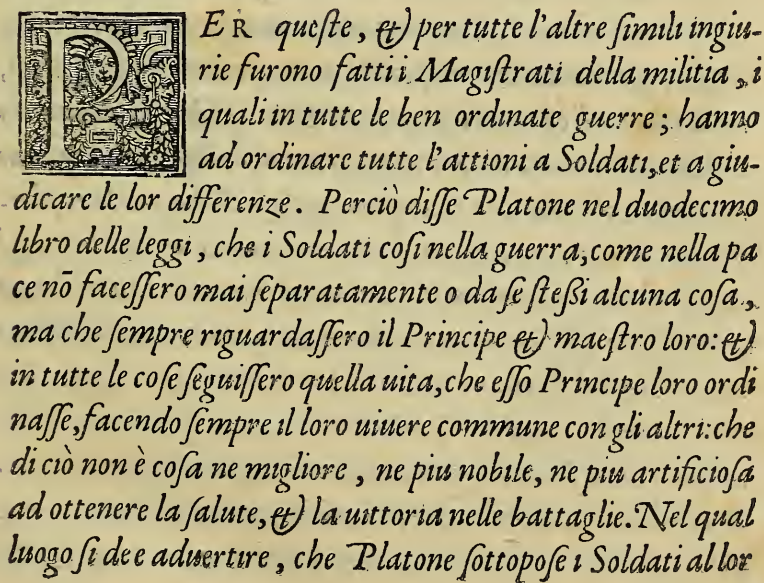 PER queſte, & per tutte l'altre ſimili ingiu-
rie furono fatti i Magiſtrati della militia, i
quali in tutte le ben ordinate guerre; hanno
ad ordinare tutte l'attioni a Soldati, et a giu-
dicare le lor differenze. Perciò diſſe Platone nel duodecimo
libro delle leggi, che i Soldati coſi nella guerra, come nella pa
ce nō faceſſero mai ſeparatamente o da ſe ſteſſi alcuna coſa,
ma che ſempre riguardaſſero il Principe & maeſtro loro: &
in tutte le coſe ſeguiſſero quella uita, che eſſo Principe loro ordi
naſſe, facendo ſempre il loro uiuere commune con gli altri: che
di ciò non è coſa ne migliore, ne piu nobile, ne piu artificioſa
ad ottenere la ſalute, & la uittoria nelle battaglie. Nel qual
luogo ſi dee aduertire, che Platone ſottopoſe i Soldati al lor